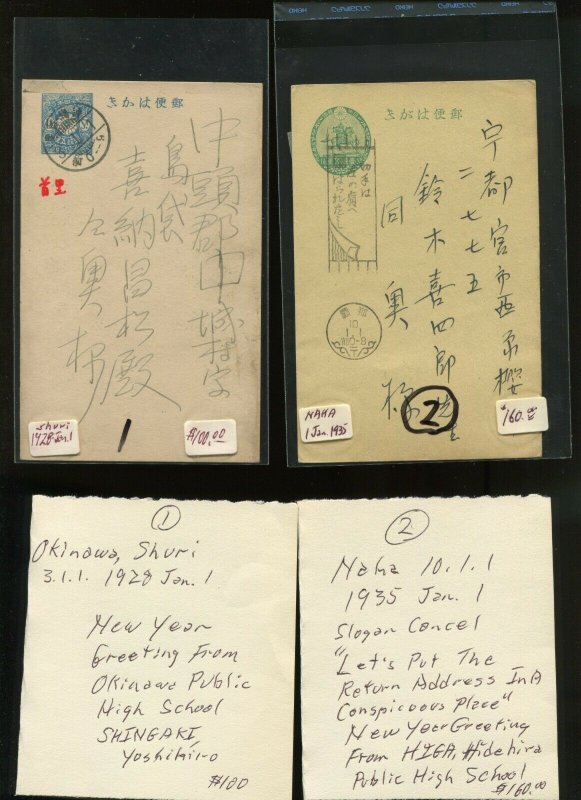 きがは便郵
首里
中頭郡中城村字
島袋
喜納昌松殿
仝 奥様
Shuri
1928 Jan. 1
1
$100.00
きがは便郵
切手は
10
1.1
宇都宮市西原
二七七五
鈴木喜四郎
同 奥 様
2
NAHA
1 Jan. 1935
$160.00
1
Okinawa, Shuri
3.1.1. 1928 Jan. 1
New Year
Greeting From
Okinawa Public
High School
SHINGAKI
Yoshihiro
$100
2
Naha 10.1.1
1935 Jan. 1
Slogan Cancel
"Let's Put The
Return Address In A
Conspicuous Place"
New Year Greeting
From HIGA, Hidehira
Public High School
$160.00